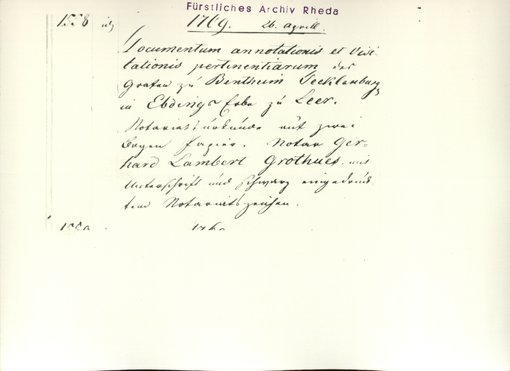 Fürstliches Archiv Rheda
1558 1769. 26. Aprill.
Documentum annotationis et visi
tationis pertinentiarum des
Grafen zu Bentheim Tecklenburg
in Ebdings Erbe zu Leer.
Notariatsurkunde auf zwei
Bogen Papier. Notar Ger-
hard Lambert Grothues mit
Unterschrift und schwarz eingedruck
tem Notariatszeichen.